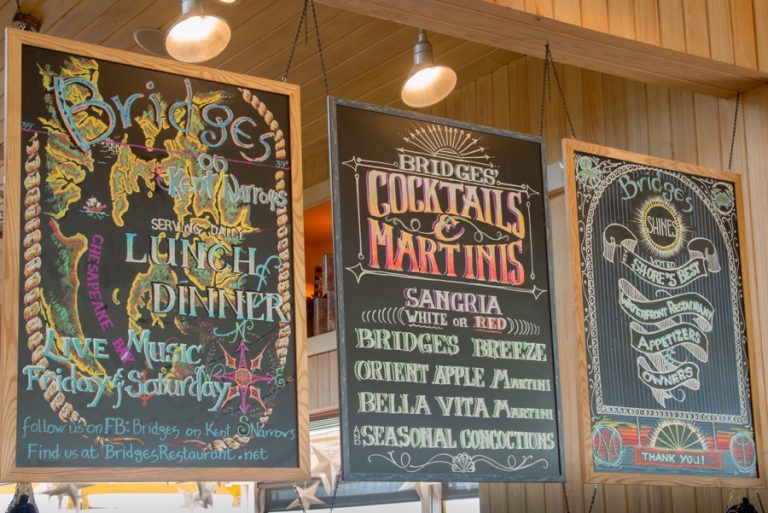 Bridges
on
Kent Narrows
39°
39°
SERVING DAILY
LUNCH &
DINNER
CHESAPEAKE BAY
LIVE Music
Friday & Saturday
follow us on FB: Bridges on Kent Narrows
Find us at BridgesRestaurant.net
BRIDGES'
COCKTAILS
&
MARTINIS
SANGRIA
(WHITE OR RED)
BRIDGES BREEZE
ORIENT APPLE MARTINI
BELLA VITA MARTINI
AND SEASONAL CONCOCTIONS
Bridges
SHINES
VOTED
THE SHORE'S BEST
WATERFRONT RESTAURANT
APPETIZERS
&
OWNERS
THANK YOU!